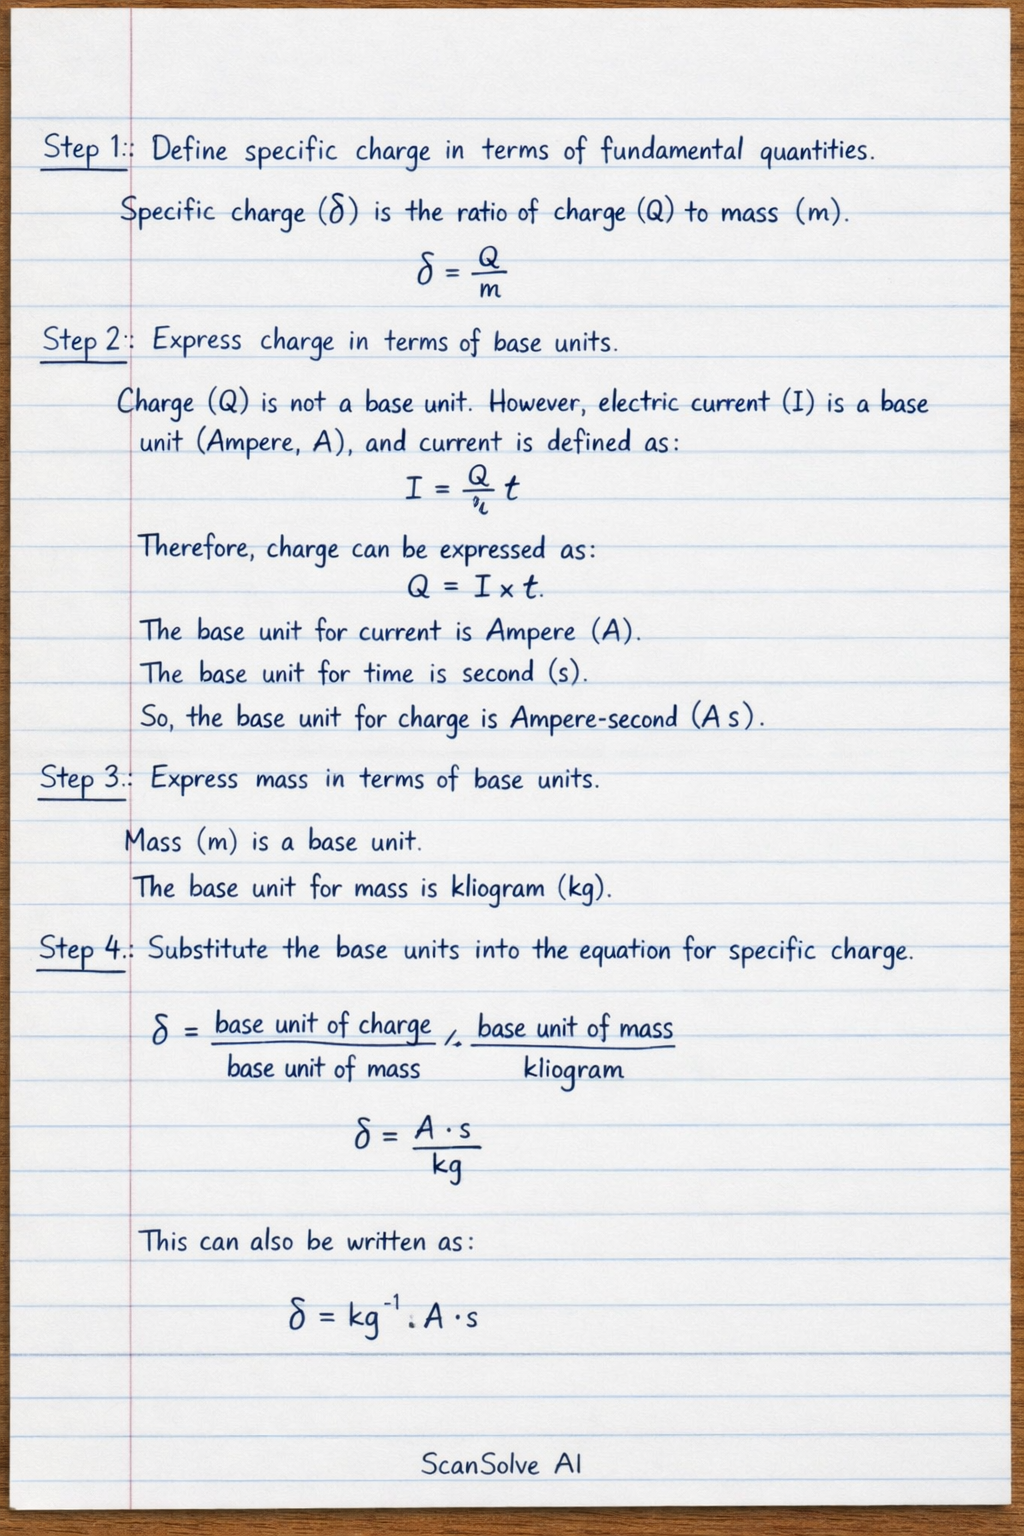 Step 1:: Define specific charge in terms of fundamental quantities.
Specific charge (δ) is the ratio of charge (Q) to mass (m).
δ = Q/m
Step 2:: Express charge in terms of base units.
Charge (Q) is not a base unit. However, electric current (I) is a base
unit (Ampere, A), and current is defined as:
I = Q/ t
Therefore, charge can be expressed as:
Q = I × t.
The base unit for current is Ampere (A).
The base unit for time is second (s).
So, the base unit for charge is Ampere-second (A s).
Step 3.: Express mass in terms of base units.
Mass (m) is a base unit.
The base unit for mass is kliogram (kg).
Step 4.: Substitute the base units into the equation for specific charge.
δ = base unit of charge/base unit of mass /. base unit of mass/kliogram
δ = A · s/kg
This can also be written as:
δ = kg⁻¹ . A · s
ScanSolve AI